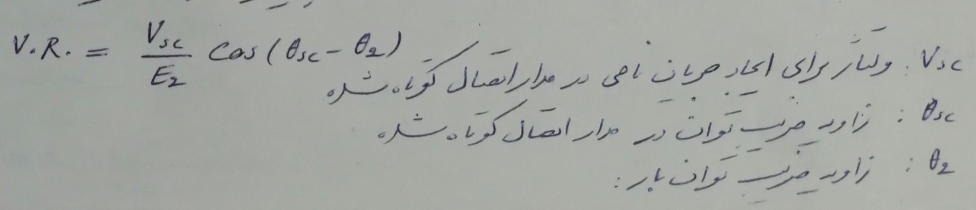 V.R. = \frac{V_{sc}}{E_2} \cos(\theta_{sc} - \theta_2)
V_{sc} : ولتاژ برای ایجاد جریان نامی در مدار اتصال کوتاه شده
\theta_{sc} : زاویه ضریب توان در مدار اتصال کوتاه شده
\theta_2 : زاویه ضریب توان بار :